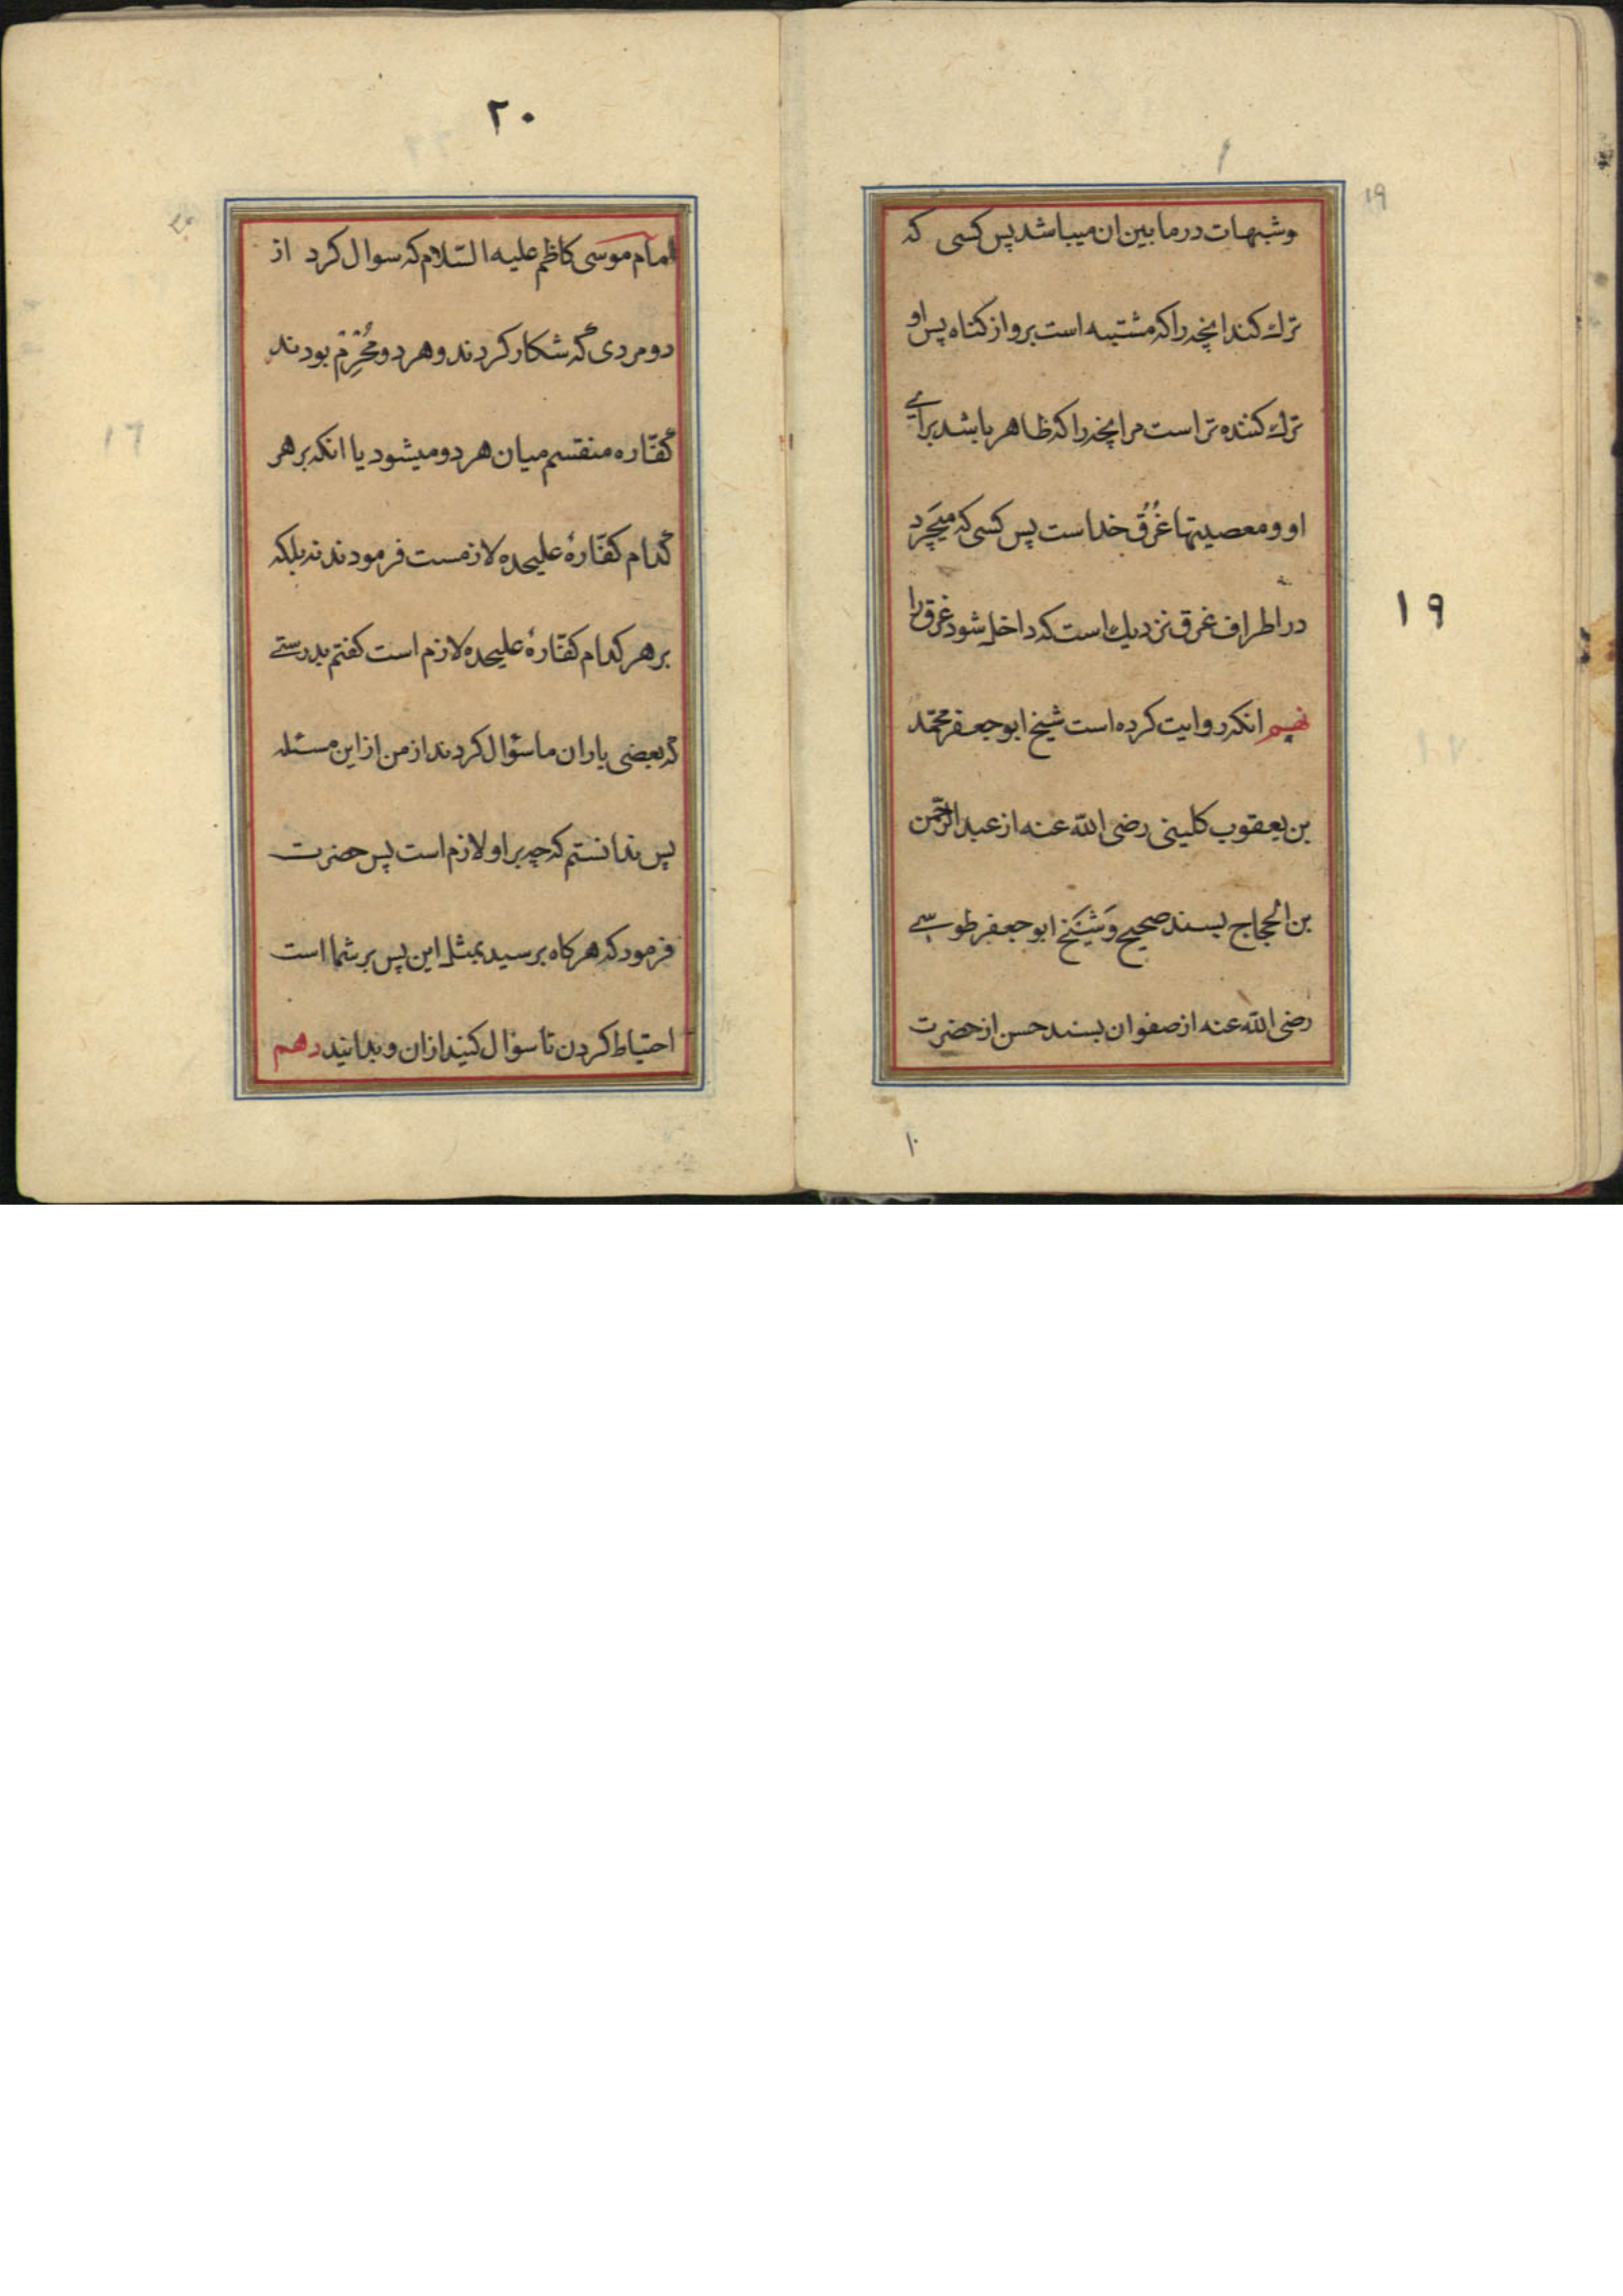 ۱۹
وشبهات در مابین ان میباشد پس کسی که
ترك کند انچه را که مشتبه است برو از کناه پس او
ترك کننده تر است مر انچه را که ظاهر باشد برای
او و معصیتها غُرُق خداست پس کسی که میچَرد
در اطراف غرق نزدیك است که داخل شود غرق را
نهم انکه روایت کرده است شیخ ابو جعفر محمّد
بن یعقوب کلینی رضی الله عنه از عبد الرّحمن
بن الحجاج بسند صحیح وَشَیَخ ابو جعفر طوسی
رضی الله عنه از صفوان بسند حسن از حضرت
۱۹
۲۰
امام موسی کاظم علیه السّلام که سوال کرد از
دو مردی که شکار کردند و هر دو مُحْرِم بودند
کفّاره منقسم میان هر دو میشود یا انکه بر هر
کدام کفّارهٔ علیحده لازمست فرمودند نه بلکه
بر هر کدام کفّارهٔ علیحده لازم است کفتم بدرستی
که بعضی یاران ما سؤال کردند از من از این مسئله
پس ندانستم که چه بر او لازم است پس حضرت
فرمود که هر کاه برسید بمثل این پس بر شما است
احتیاط کردن تا سؤال کنید از ان و بدانید دهم